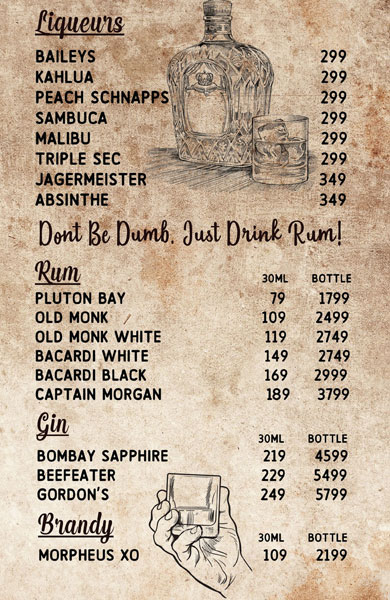 Liqueurs
BAILEYS 299
KAHLUA 299
PEACH SCHNAPPS 299
SAMBUCA 299
MALIBU 299
TRIPLE SEC 299
JAGERMEISTER 349
ABSINTHE 349
Dont Be Dumb, Just Drink Rum!
Rum 30ML BOTTLE
PLUTON BAY 79 1799
OLD MONK 109 2499
OLD MONK WHITE 119 2749
BACARDI WHITE 149 2749
BACARDI BLACK 169 2999
CAPTAIN MORGAN 189 3799
Gin 30ML BOTTLE
BOMBAY SAPPHIRE 219 4599
BEEFEATER 229 5499
GORDON'S 249 5799
Brandy 30ML BOTTLE
MORPHEUS XO 109 2199